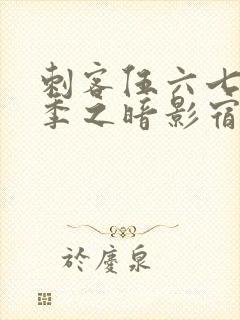 刺客伍六七
季之暗影宿
於慶泉